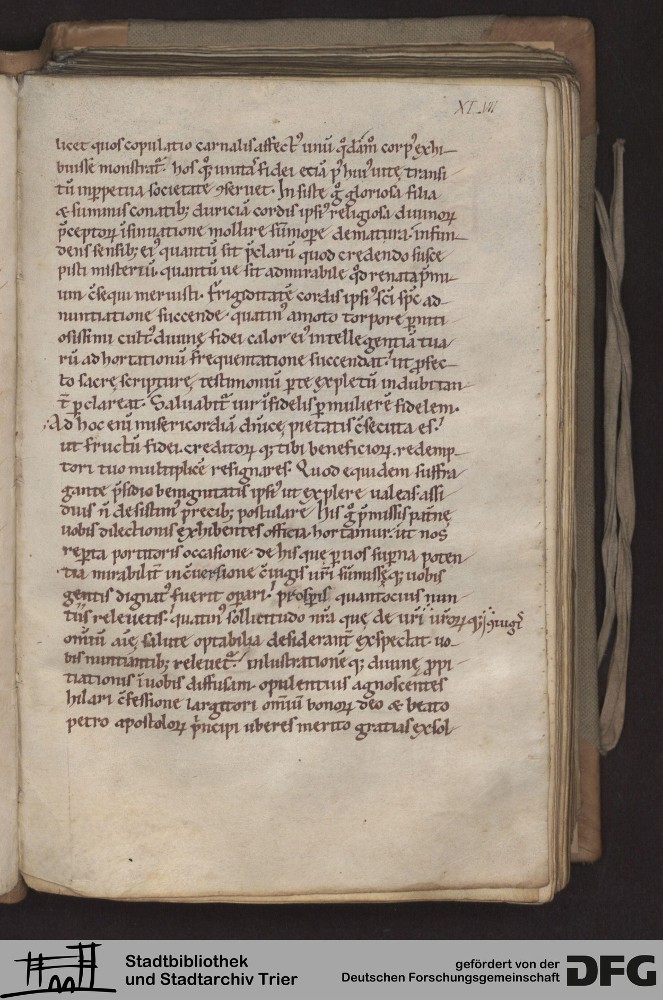 XLVII
licet quos copulatio carnalis affect᷒ unū q̄dāmͦ corp᷒ exhi-
buisse monstrat᷑. hos q̨ʒ unitaſ fidei etiā p᷒ hui᷒ uitę transi
tū inꝑpetua societate ꝯseruet. Insiste g̊ gloriosa filia
& summis conatib; duriciā cordis ipsi᷒ religiosa diuinoꝝ
p̄ceptoꝝ insinuatione mollire sūmoꝑe dematura. infun-
dens sensib; ei᷒ quantū sit p̄clarū quod credendo susce
pisti misteriū. quantū ue sit admirabile q̄d renata p̄mi-
um c̄sequi meruisti. Frigiditatē cordis ipsi᷒ sc̄i sp̄c ad-
nuntiatione succende. quatin᷒ amoto torpore ꝑniti
osissimi cult᷒ diuinę fidei calor ei᷒ intellegentiā tua
rū adhortationū frequentatione succendat. ut ꝓfec-
to sacrę scripturę testimoniū ꝑ te expletū indubitan-
t̄ ꝑclareat. Saluabit᷑ uir īfidelis ꝑ mulierē fidelem.
Ad hoc enī misericordiā dn̄icę pietatis c̄secuta es.
ut fructū fidei creditoꝝ q; tibi beneficioꝝ redemp-
tori tuo multiplicē resignares. Quod equidem suffra
gante p̄sidio benignitatis ipsi᷒ ut explere ualeas assi
duis n̄ desistim᷒ precib; postulare. His g̊ p̄missis patn̄ę
uobis dilectionis exhibentes officia. hortamur. ut nos
reꝑta portitoris occasione de his quę ꝑ uos suꝑna poten
tia mirabilit̄ in c̄uersione c̄iugis ur̄i sūmissęq; uobis
gentis dignat᷒ fuerit oꝑari. prosꝑis quantocius nun-
tiis releuetis. quatin᷒ sollicitudo nr̄a quę de ur̄i ur̄oꝝ q; ꝯiugis
omniū aīę salute optabilia desiderant̄ exspectat. uo-
bis nuntiantib; releuet᷑. inlustrationē q; diuinę ꝓpi-
tiationis ī uobis diffusam opulentius agnoscentes
hilari c̄fessione largitori omniū bonoꝝ deo & beato
petro apostoloꝝ p̄ncipi uberes merito gratias exsol-
Stadtbibliothek
und Stadtarchiv Trier
gefördert von der
Deutschen Forschungsgemeinschaft
DFG